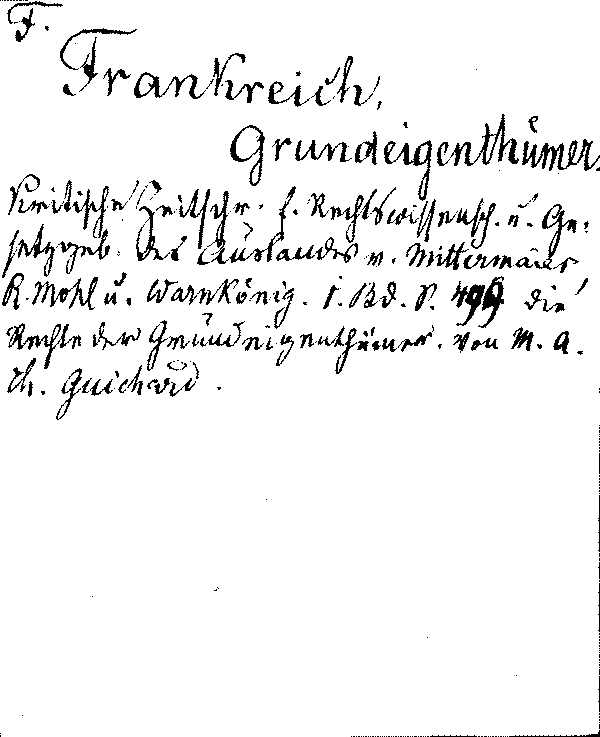 F.
Frankreich,
Grundeigenthümer.
Kritische Zeitschr. f. Rechtswissensch. u. Ge-
setzgeb. des Auslandes v. Mittermaier,
R. Mohl u. Warnkönig. i. Bd. S. 499 die
Rechte der Grundeigenthümer. von M. A.
Ch. Guichard.